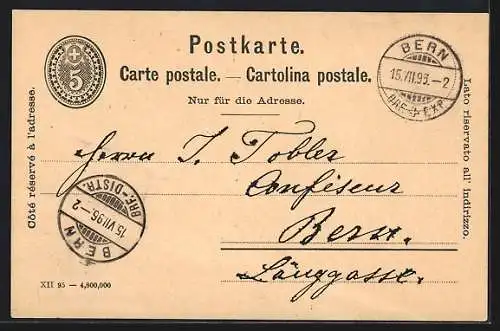 5
Postkarte.
Carte postale. — Cartolina postale.
Nur für die Adresse.
BERN
15.VII.96.–2
BRF. EXP.
Côté réservé à l'adresse.
Lato riservato all' indirizzo.
Herrn J. Tobler
Confiseur
Bern.
Länggasse.
BERN
15.VII.96.–2
BRF.-DISTR.
XII 95 — 4,800,000